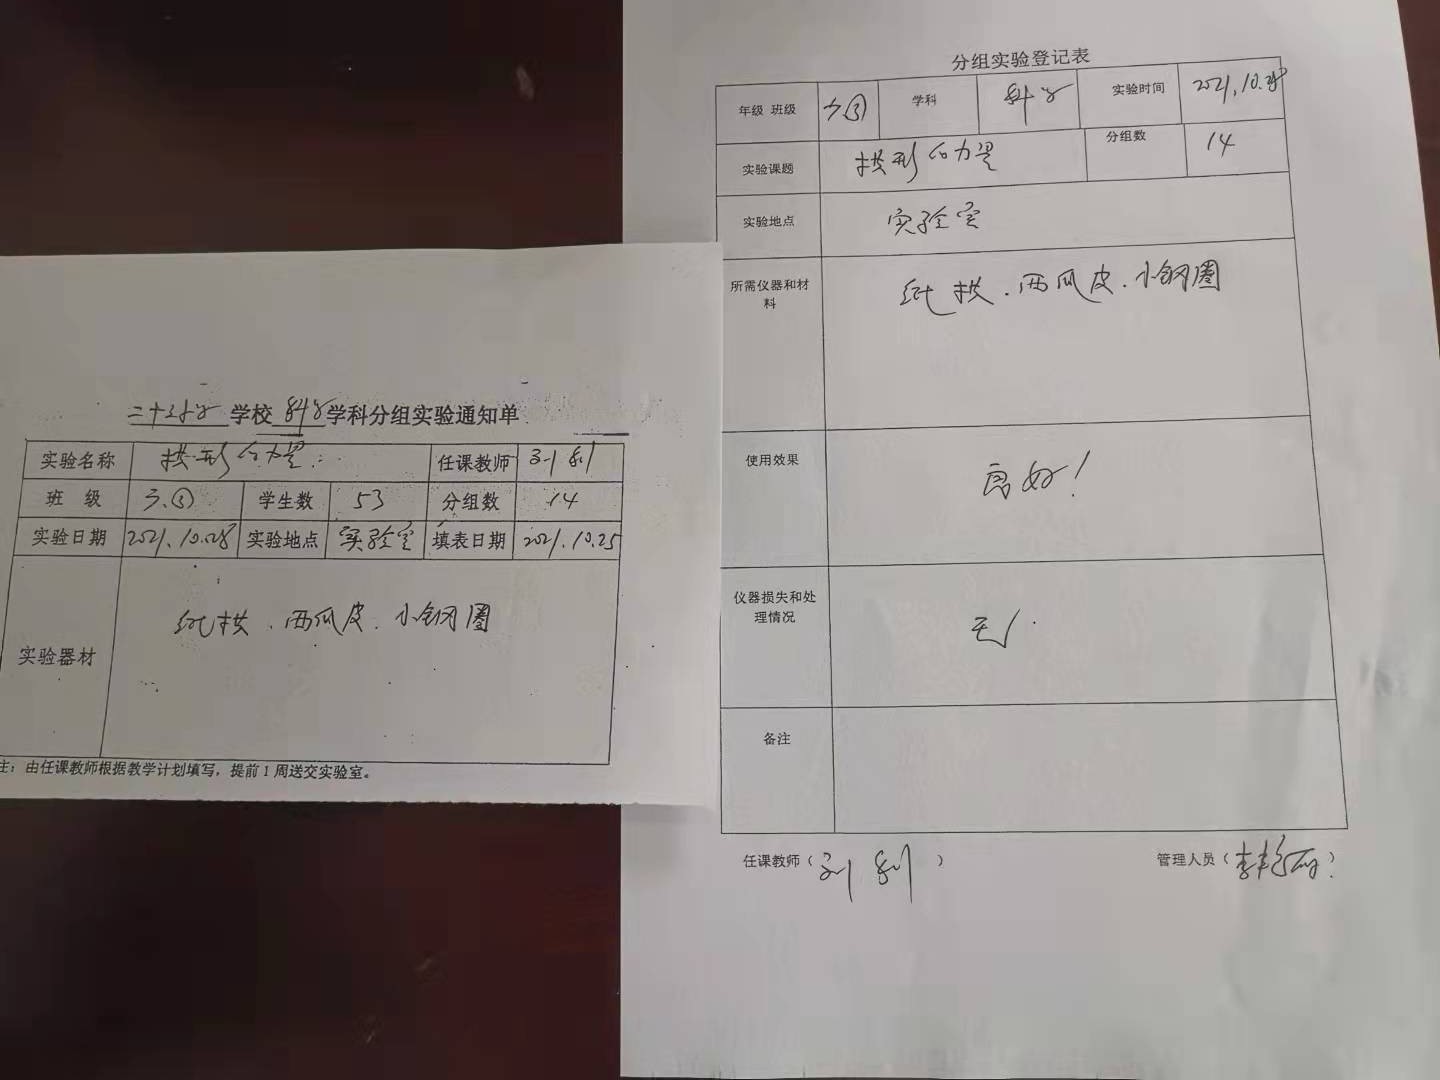 分组实验登记表
年级 班级 六③ 学科 科学 实验时间 2021.10.28
实验课题 拱形的力量 分组数 14
实验地点 实验室
所需仪器和材料 纸拱.西瓜皮.小钢圈
使用效果 良好!
仪器损失和处理情况 无.
备注
任课教师( ) 管理人员( )
学校 科学 学科分组实验通知单
实验名称 拱形的力量. 任课教师
班 级 六.③ 学生数 53 分组数 14
实验日期 2021.10.28 实验地点 实验室 填表日期 2021.10.25
实验器材 纸拱.西瓜皮.小钢圈
注:由任课教师根据教学计划填写,提前1周送交实验室。